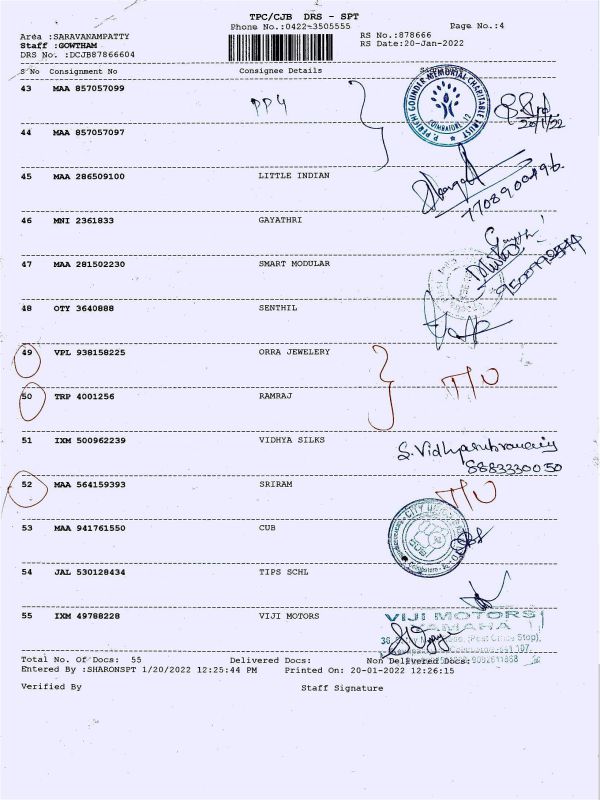 TPC/CJB DRS - SPT
Phone No.:0422-3505555
Page No.:4
Area :SARAVANAMPATTY
RS No.:878666
Staff :GOWTHAM
RS Date:20-Jan-2022
DRS No. :DCJB87866604
S No Consignment No Consignee Details
43 MAA 857057099
PP4
P. PERICHI GOUNDER MEMORIAL CHARITABLE TRUST
COIMBATORE
20/1/22
44 MAA 857057097
45 MAA 286509100 LITTLE INDIAN
46 MNI 2361833 GAYATHRI
47 MAA 281502230 SMART MODULAR
48 OTY 3640888 SENTHIL
49 VPL 938158225 ORRA JEWELERY
50 TRP 4001256 RAMRAJ
T/O
51 IXM 500962239 VIDHYA SILKS
8883330050
52 MAA 564159393 SRIRAM
T/O
53 MAA 941761550 CUB
54 JAL 530128434 TIPS SCHL
55 IXM 49788228 VIJI MOTORS
VIJI MOTORS
YAMAHA
Total No. Of Docs: 55 Delivered Docs: Non Delivered Docs:
Entered By :SHARONSPT 1/20/2022 12:25:44 PM Printed On: 20-01-2022 12:26:15
Verified By Staff Signature